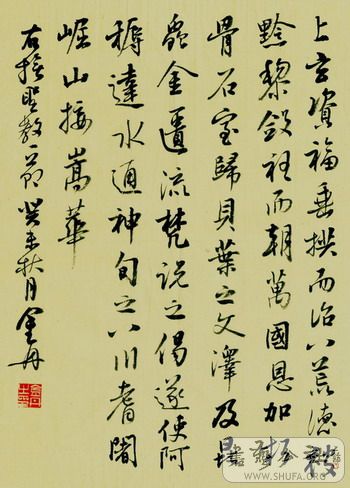 上玄資福垂拱而治八荒德被
黔黎斂衽而朝萬國恩加朽
骨石室歸貝葉之文澤及昆
蟲金匱流梵說之偈遂使阿
耨達水通神甸之八川耆闍
崛山接嵩華
右聖教一節癸未秋月金丹
WWW.SHUFA.ORG